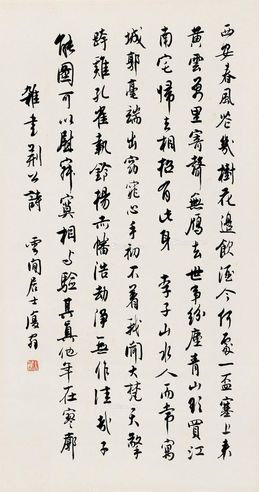 西安春風花幾樹花邊飲酒今何處一盃塞上看
黃雲萬里寄聲無鴈去世事紛塵青山欲買江
南宅歸去相招有此身 李子山水人而常寓
城郭毫端出窈窕心手初不著我聞大梵天擎
跨雞孔雀執鈴揚赤幡浩劫淨無作佳哉子
能圖可以慰寂寞相与驗其真他年在寥廓
雜書荆公詩 雲間居士